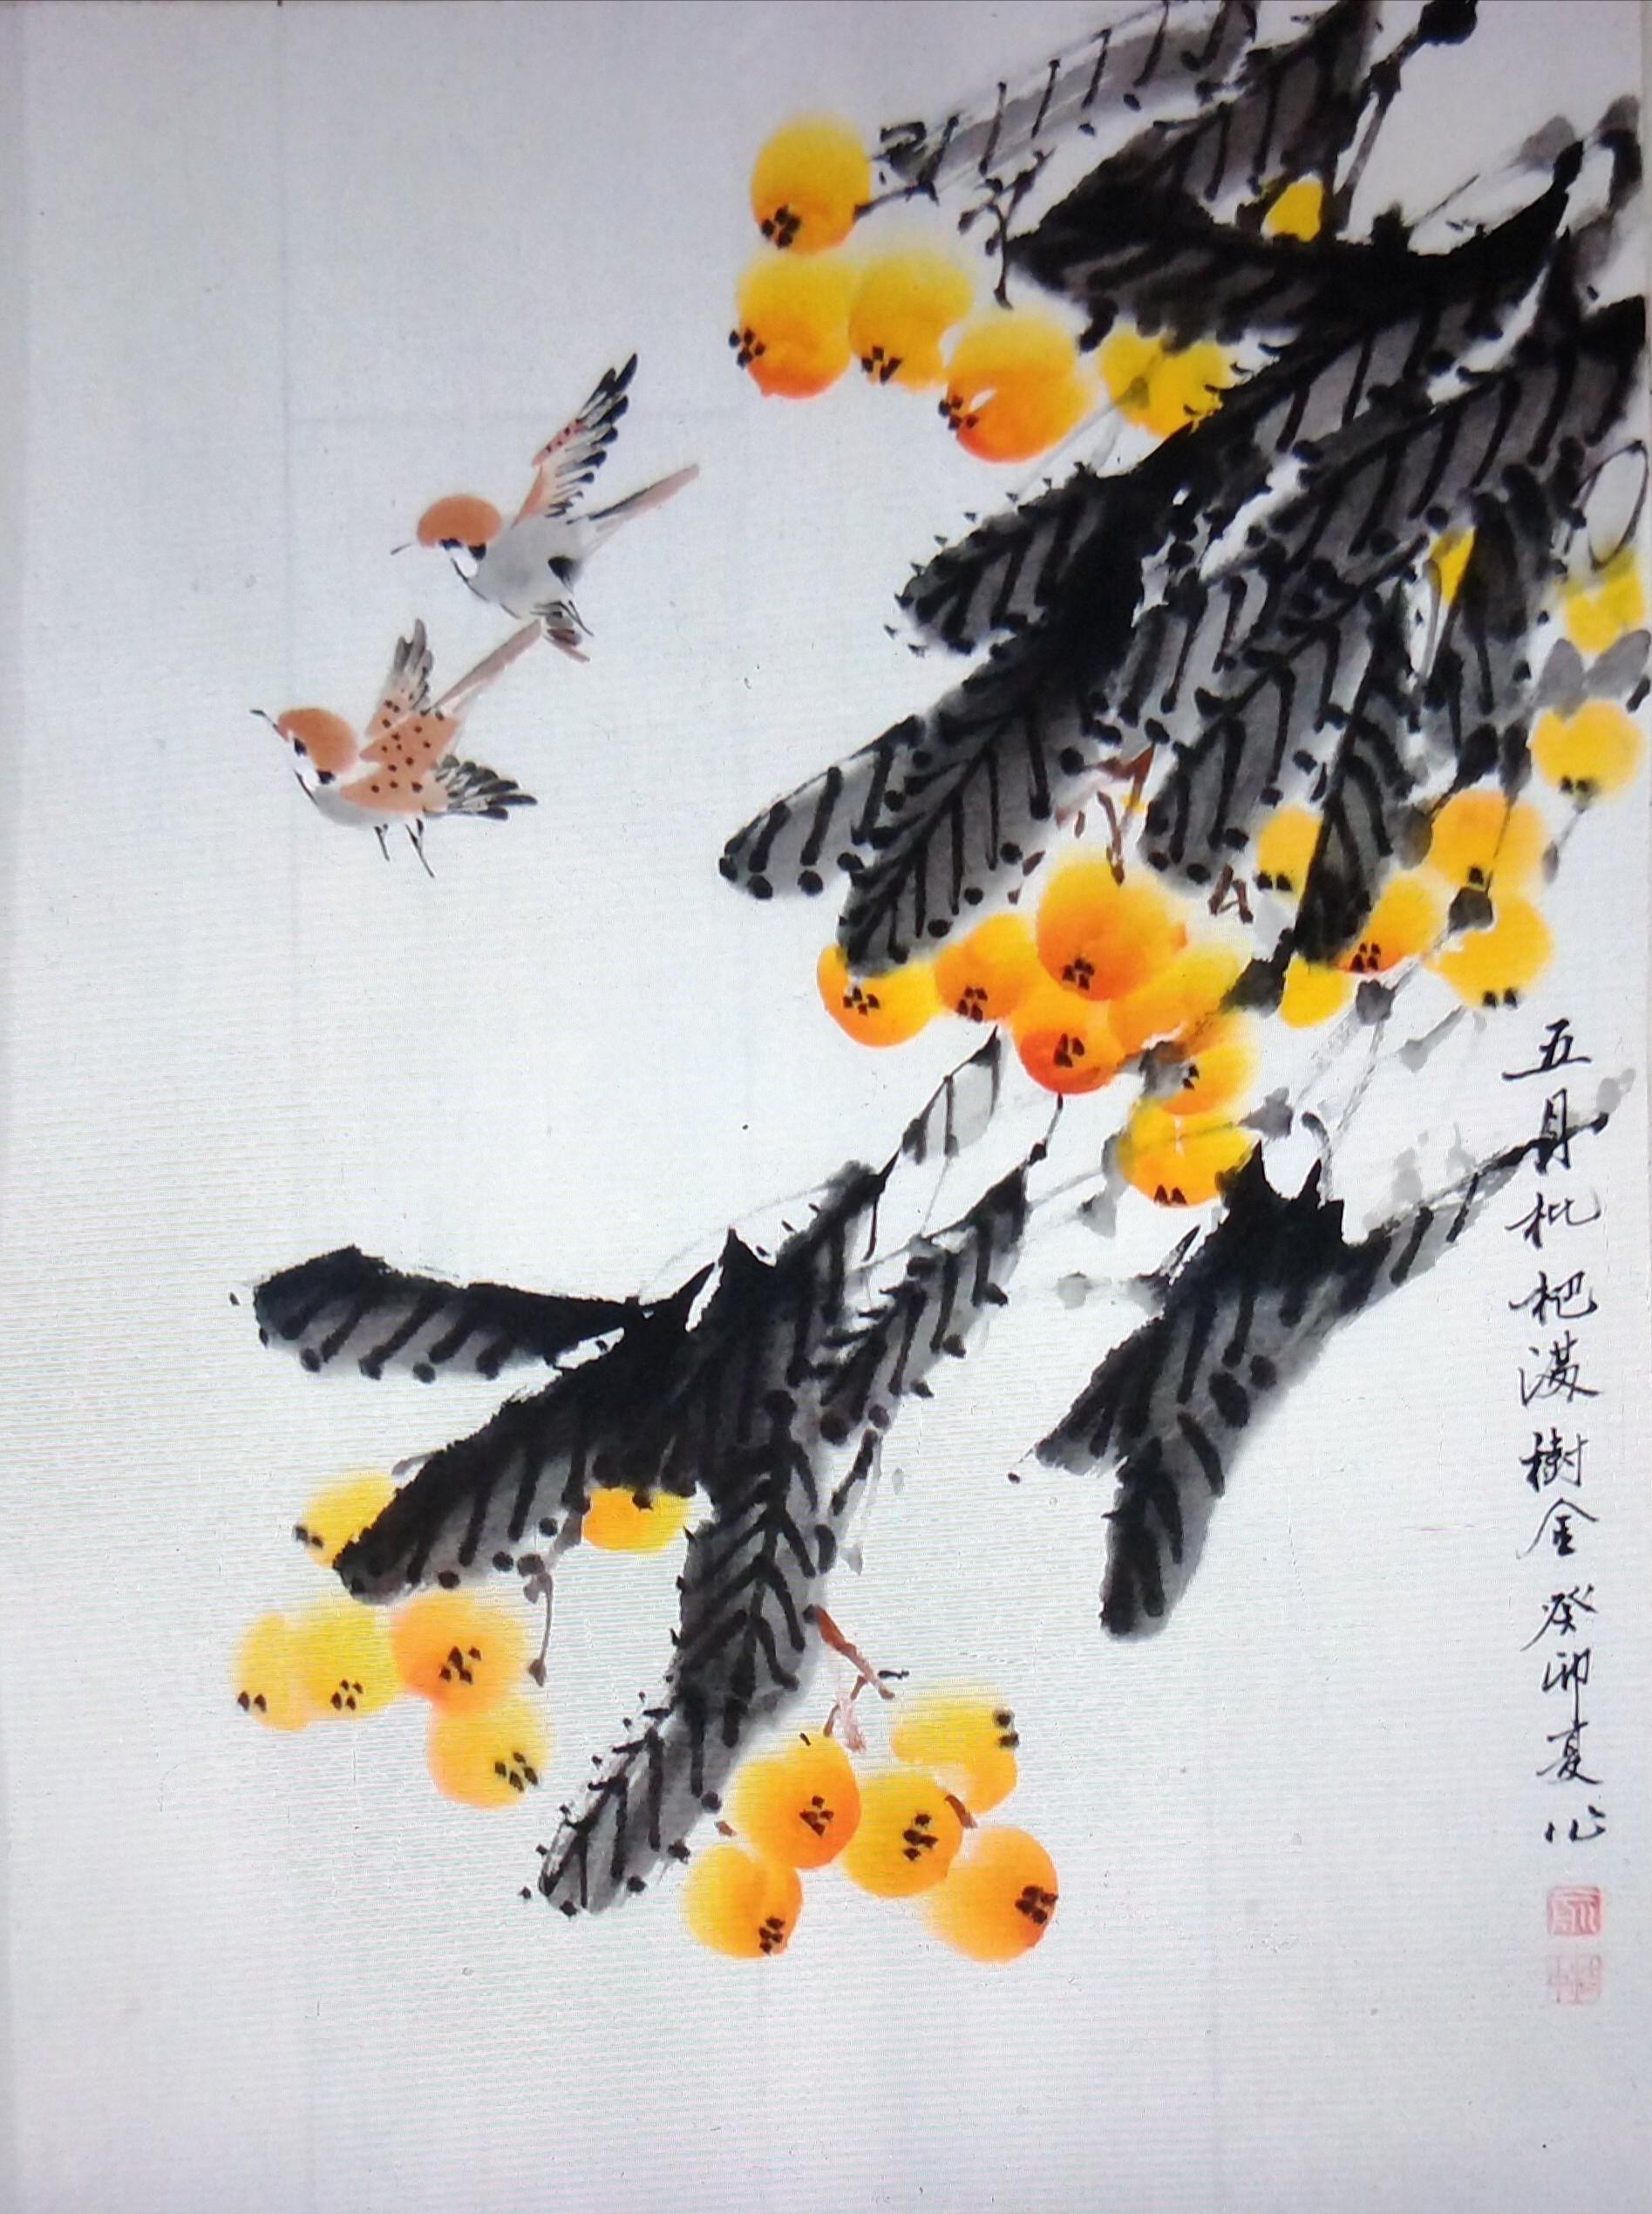 五月枇杷满樹金 癸卯夏作